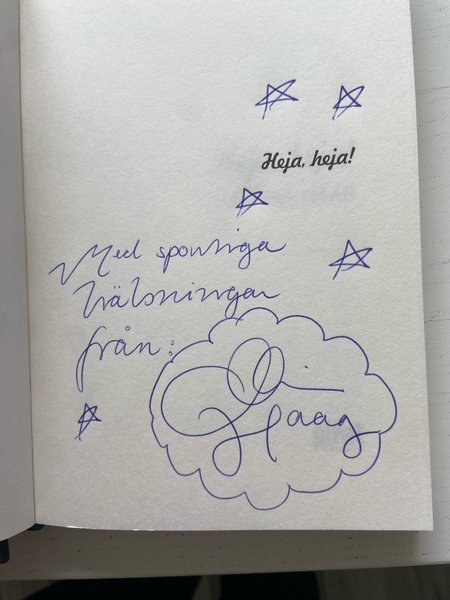 Heja, heja!
Med sportiga
hälsningar
från:
Haag